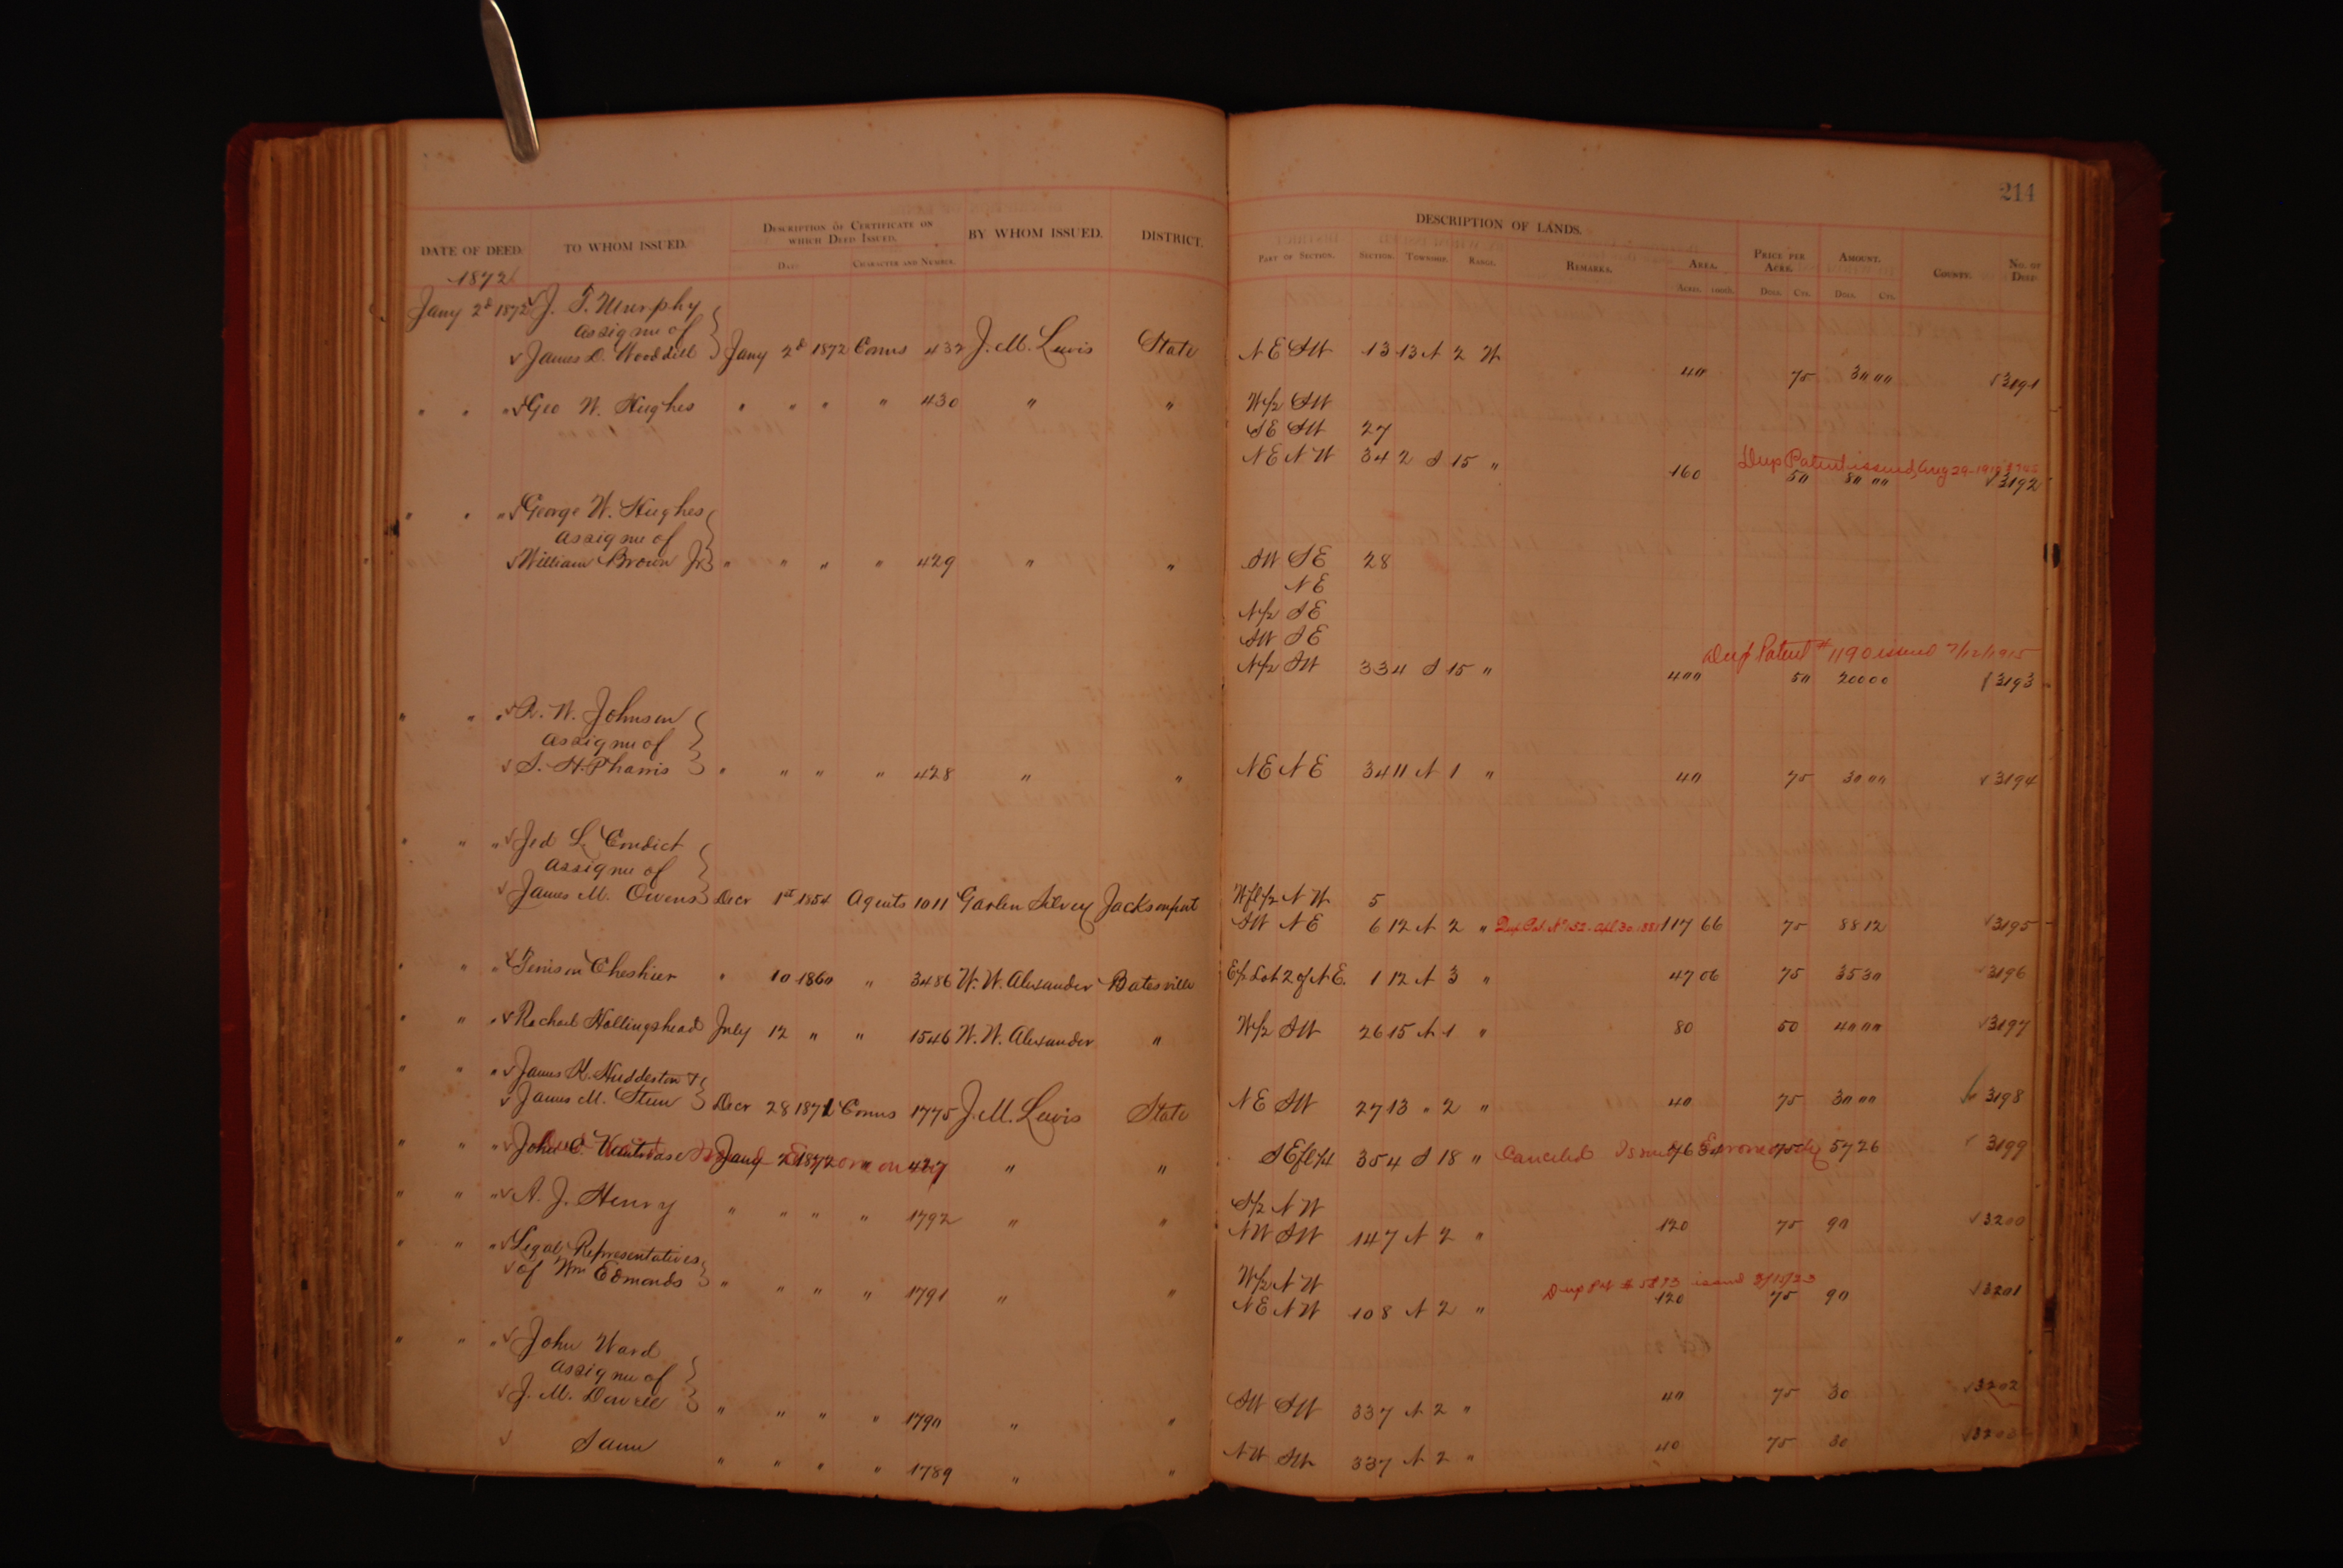 214
DESCRIPTION OF LANDS.
DATE OF DEED. TO WHOM ISSUED. DESCRIPTION OF CERTIFICATE ON WHICH DEED ISSUED. BY WHOM ISSUED. DISTRICT. PART OF SECTION. SECTION. TOWNSHIP. RANGE. REMARKS. AREA. PRICE PER ACRE. AMOUNT. COUNTY. NO. OF DEED.
DATE CHARACTER AND NUMBER. ACRES. 100TH. DOLL. CTS. DOLL. CTS.
1872
Jany 2d 1872 J. T. Murphy
assignee of
James D. Wooddell Jany 2d 1872 Comrs 432 J. M. Lewis State N E S W 13 13 N 2 W 40 75 30 00 3191
" " " Geo W. Hughes " " " " 430 " " W/2 S W
S E S W 27
N E N W 34 2 S 15 " 160 50 80 00 3192
Dup Patent issued Aug 29
" " " George W. Hughes
assignee of
William Brown Jr " " " " 429 " " S W S E 28
N E
N/2 S E
S W S E
Dup Patent # 1190 issued 7/12/1915
N/2 S W 33 4 S 15 " 400 50 200 00 3193
" " " R. W. Johnson
assignee of
S. H. Pharris " " " " 428 " " N E N E 34 11 N 1 " 40 75 30 00 3194
" " " Jed L. Condict
assignee of
James M. Owens Decr 1st 1854 Agents 1011 Garlen Silvey Jacksonport W fl/2 N W 5
S W N E 6 12 N 2 " Dup Pat. No 152 Apl. 30. 1881 117 66 75 88 12 3195
" " " Tenison Cheshier " 10 1860 " 3486 W. W. Alexander Batesville E/2 Lot 2 of N E. 1 12 N 3 " 47 06 75 35 30 3196
" " " Rachael Hollingshead July 12 " " 1546 W. W. Alexander " W/2 S W 26 15 N 1 " 80 50 40 00 3197
" " " James K. Huddleston &
James M. Stem Decr 28 1871 Comrs 1775 J. M. Lewis State N E S W 27 13 " 2 " 40 75 30 00 3198
" " " John C. Jany 2 1872 " 427 " " S E fl/4 35 4 S 18 " Canceled Issued Erroneously 76 34 75 57 26 3199
" " " A. J. Henry " " " " 1792 " " S/2 N W
N W S W 14 7 N 2 " 120 75 90 3200
" " " Legal Representatives
of Wm Edmonds " " " " 1791 " " W/2 N W
Dup Pat # issued 3/15/23
N E N W 10 8 N 2 " 120 75 90 3201
" " " John Ward
assignee of
J. M. " " " " 1790 " " S W S W 33 7 N 2 " 40 75 30 3202
Same " " " " 1789 " " N W S W 33 7 N 2 " 40 75 30